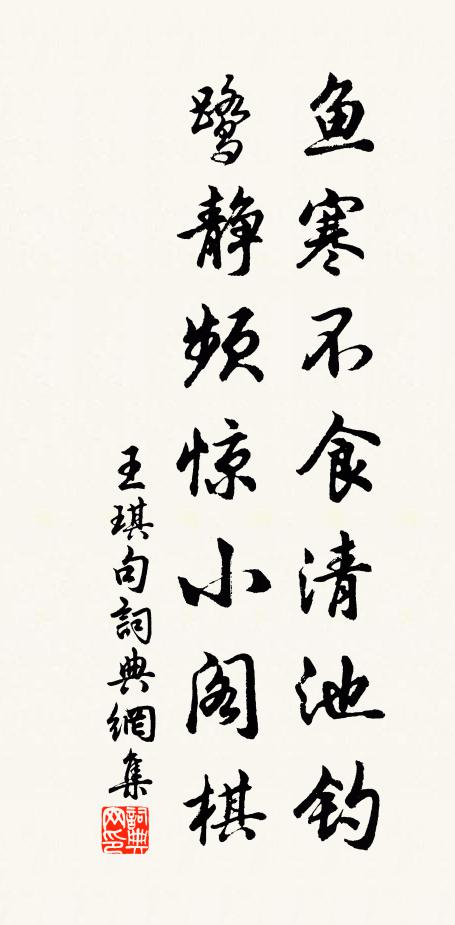 鱼寒不食清池钓
鹭静频惊小阁棋
王琪句詞典網集
詞典网印